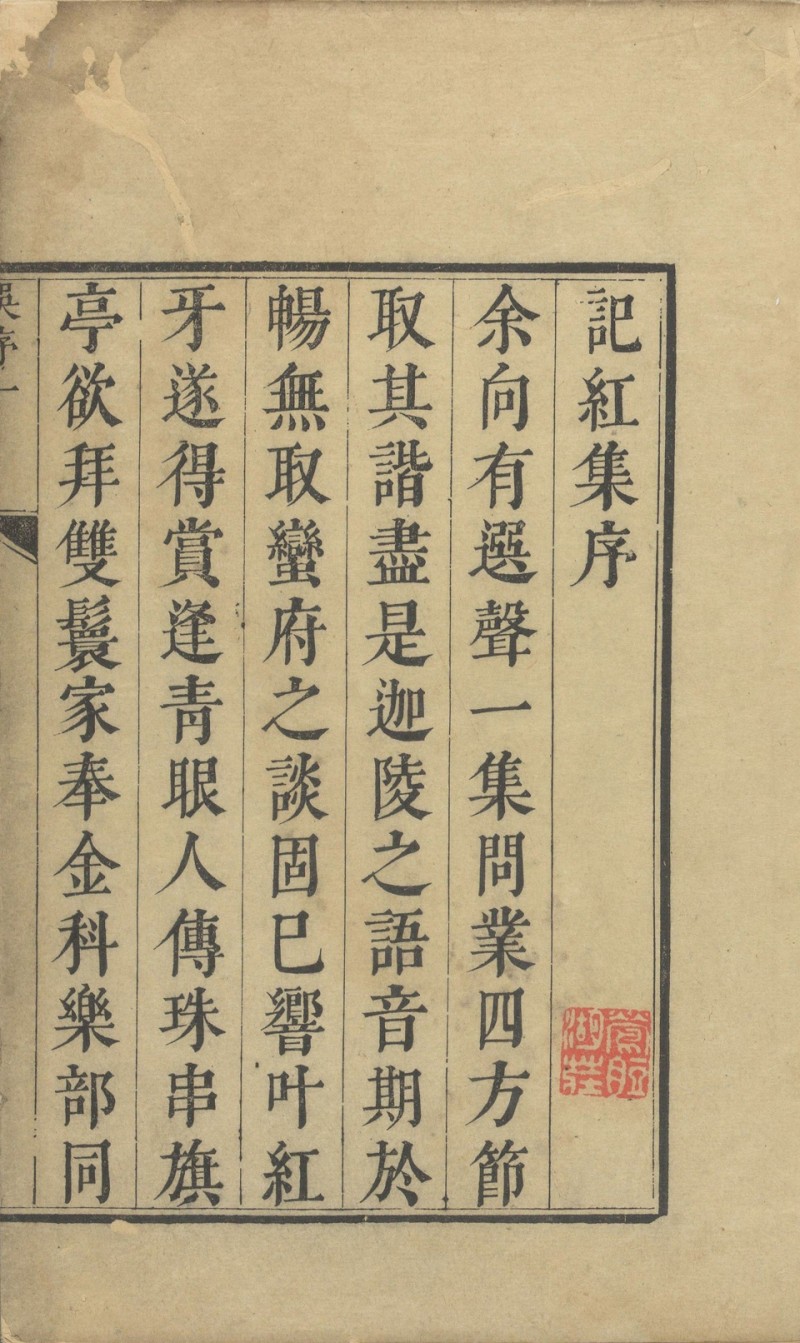 記紅集序
余向有選聲一集問業四方節
取其諧盡是迦陵之語音期於
暢無取蠻府之談固已響叶紅
牙遂得賞逢青眼人傳珠串旗
亭欲拜雙鬟家奉金科樂部同
吳序一